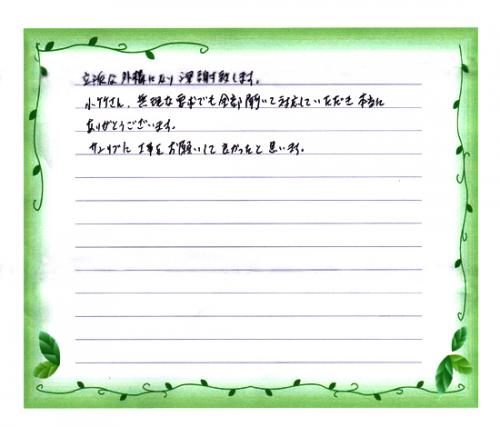 立派な外構になり深謝致します。
小ケケさん、無理な要求でも全部聞いて対応していただき本当に
ありがとうございます。
サンリブに工事をお願いして良かったと思います。